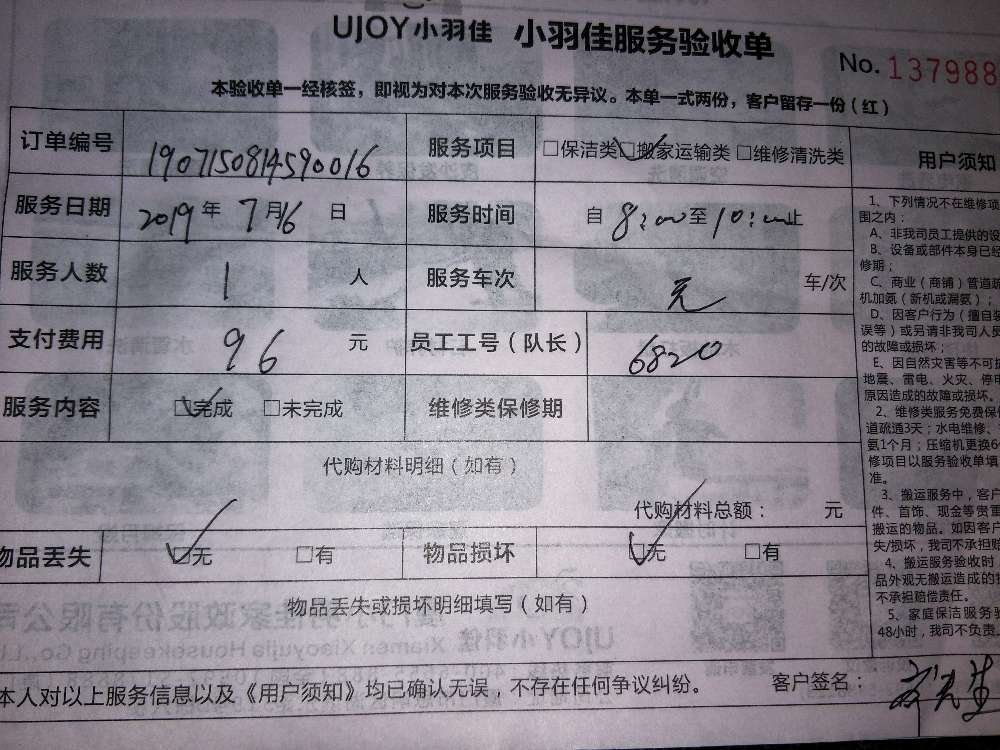 UJOY小羽佳 小羽佳服务验收单
No. 137988
本验收单一经核签，即视为对本次服务验收无异议。本单一式两份，客户留存一份（红）
订单编号 1907150814590016 服务项目 □保洁类 ☑搬家运输类 □维修清洗类
服务日期 2019 年 7 月 16 日 服务时间 自 8:00 至 10:00 止
服务人数 1 人 服务车次 无 车/次
支付费用 96 元 员工工号（队长） 6820
服务内容 ☑完成 □未完成 维修类保修期
代购材料明细（如有）
代购材料总额： 元
物品丢失 ☑无 □有 物品损坏 ☑无 □有
物品丢失或损坏明细填写（如有）
本人对以上服务信息以及《用户须知》均已确认无误，不存在任何争议纠纷。 客户签名：
用户须知
1、下列情况不在维修项
围之内：
A、非我司员工提供的设
B、设备或部件本身已经
修期；
C、商业（商铺）管道疏
机加氨（新机或漏氨）；
D、因客户行为（擅自装
误等）或另请非我司人员
的故障或损坏；
E、因自然灾害等不可抗
地震、雷电、火灾、停电
原因造成的故障或损坏。
2、维修类服务免费保修
道疏通3天；水电维修、
氨1个月；压缩机更换6
修项目以服务验收单填
准。
3、搬运服务中，客户
件、首饰、现金等贵重
搬运的物品。如因客户
失/损坏，我司不承担赔
4、搬运服务验收时
品外观无搬运造成的损
不承担赔偿责任。
5、家庭保洁服务验
48小时，我司不负责。